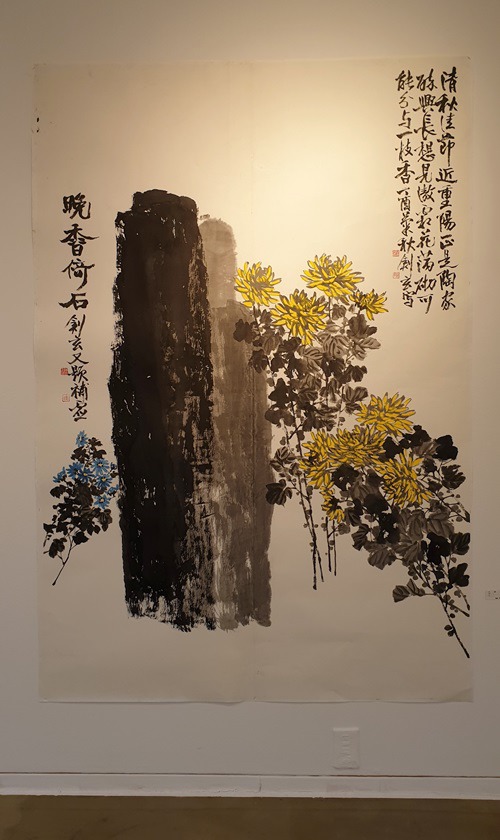 清秋佳節近重陽正是陶家
醉興長想見傲霜花滿砌可
能分与一枝香丁酉菊秋劍玄写
晚香倚石劍玄又題補